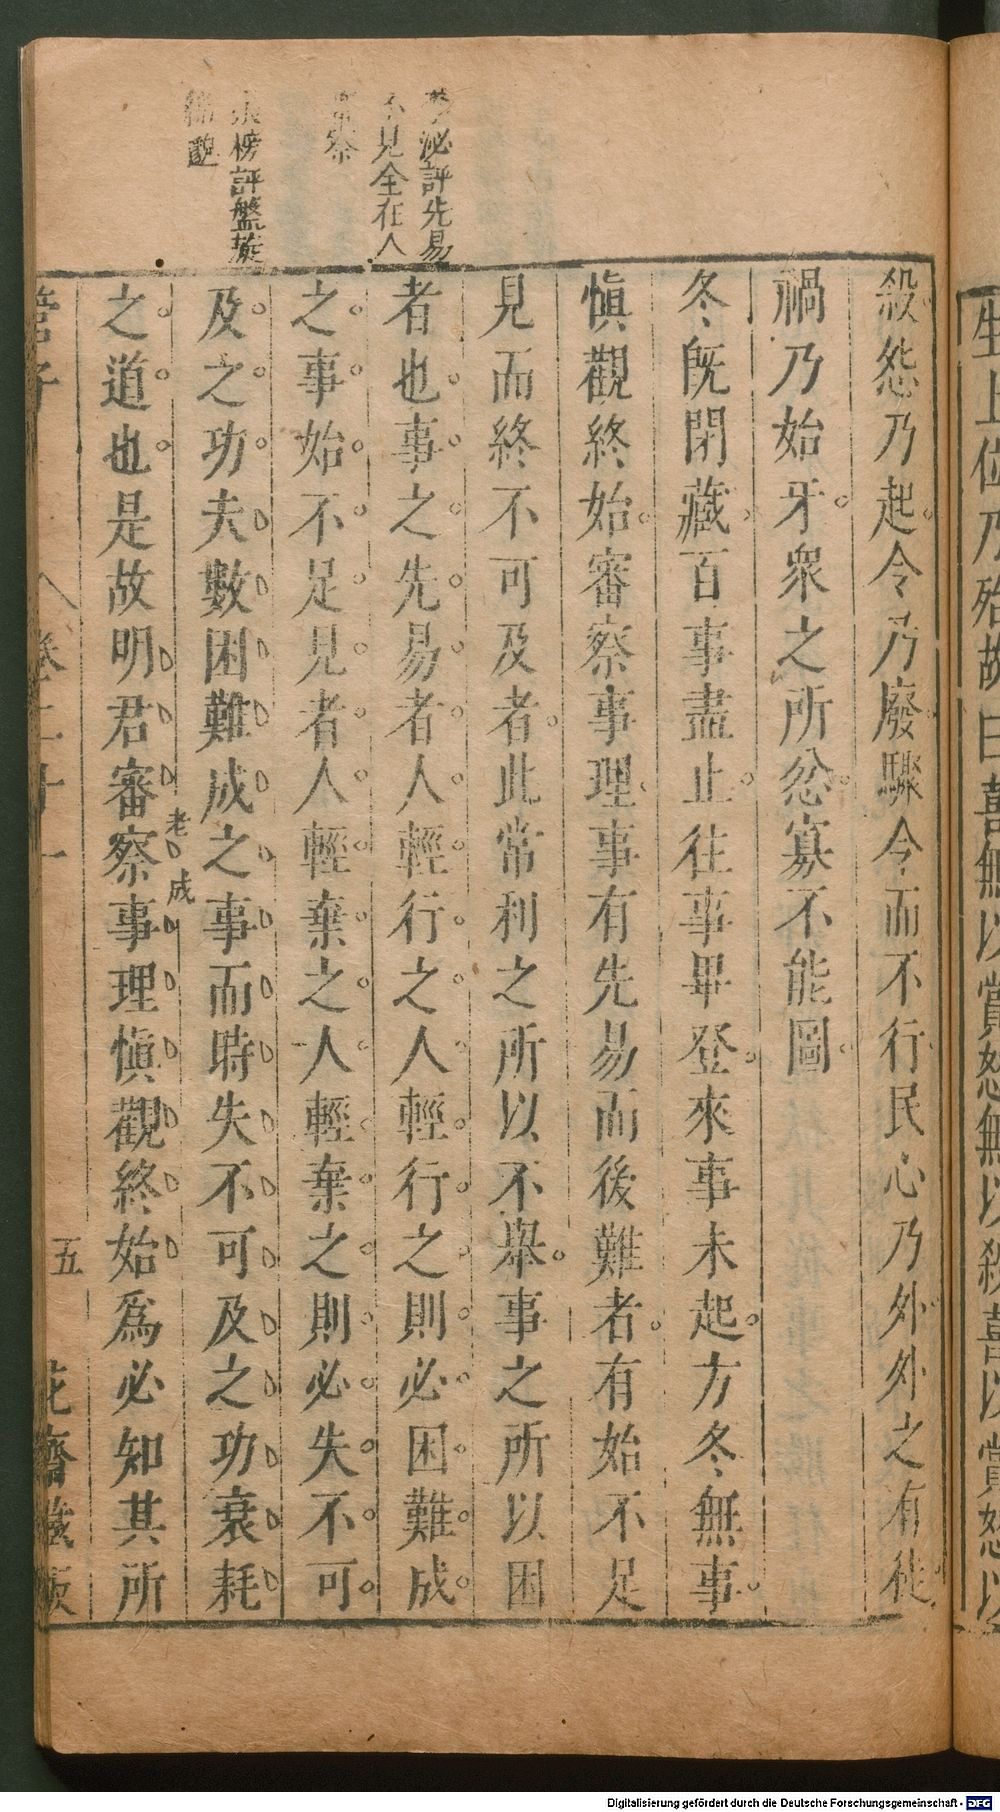 生上位乃殆故曰喜無以賞怒無以殺喜以賞怒以
殺怨乃起令乃廢驟令而不行民心乃外外之有徒
禍乃始牙衆之所忿寡不能圖
冬既閉藏百事盡止往事畢登來事未起方冬無事
慎觀終始審察事理事有先易而後難者有始不足
見而終不可及者此常利之所以不舉事之所以困
者也事之先易者人輕行之人輕行之則必困難成
之事始不足見者人輕棄之人輕棄之則必失不可
及之功夫數困難成之事而時失不可及之功衰耗
之道也是故明君審察事理慎觀終始爲必知其所
泌評先易
不見全在人
審察
張榜評盤旋
綿邈
老成
管子
卷二十一
五
花齋藏板
Digitalisierung gefördert durch die Deutsche Forschungsgemeinschaft - DFG